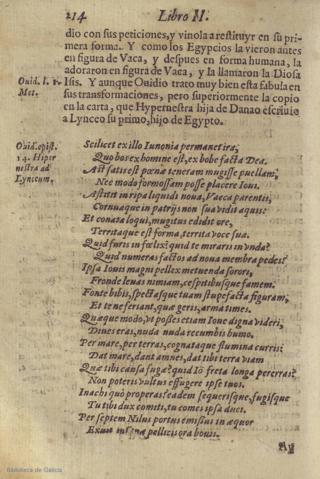 214 Libro II.
dio con sus peticiones, y vinola a restituyr en su pri-
mera forma. Y como los Egypcios la vieron antes
en figura de Vaca, y despues en forma humana, la
adoraron en figura de Vaca, y la llamaron la Diosa
Ouid. l. 1. Isis. Y aunque Ouidio trato muy bien esta fabula en
Met. sus transformaciones, pero superiormente la copio
en la carta, que Hypernestra hija de Danao escriuio
a Lynceo su primo, hijo de Egypto.
Ouid. epist. Scilicet ex illo Iunonia permanet ira;
14. Hiper Quo bos ex homine est, ex boue facta Dea.
nestra ad At satis est pœna teneram mugisse puellam,
Lynceum. Nec modo formossam posse placere Ioui.
Astitit in ripa liquidi noua, Vaca parentis,
Cornuaque in patrijs non sua vidit aquis:
Et conata loqui, mugitus edidit ore,
Territaque est forma, territa voce sua.
Quid furis infœlix? quid te miraris in vnda?
Quid numeras factos ad noua membra pedes?
Ipsa Iouis magni pellex metuenda sorori,
Fronde leuas nimiam, cespitibusque famem.
Fonte bibis, spectasque tuam stupefacta figuram;
Et te ne feriant, quæ geris, arma times.
Quæque modo, vt posses etiam Ioue digna videri,
Diues eras, nuda nuda recumbis humo.
Per mare, per terras, cognataque flumina curris:
Dat mare, dant amnes, dat tibi terra viam
Quæ tibi causa fugæ? quid Iò freta longa pererras?
Non poteris vultus effugere ipse tuos.
Inachi quò properas? eadem sequerisque, fugisque
Tu tibi dux comiti, tu comes ipsa duci.
Per septem Nilus portus emissus in æquor
Exuit insana pellicis ora bouis.
Ay
Biblioteca de Galicia